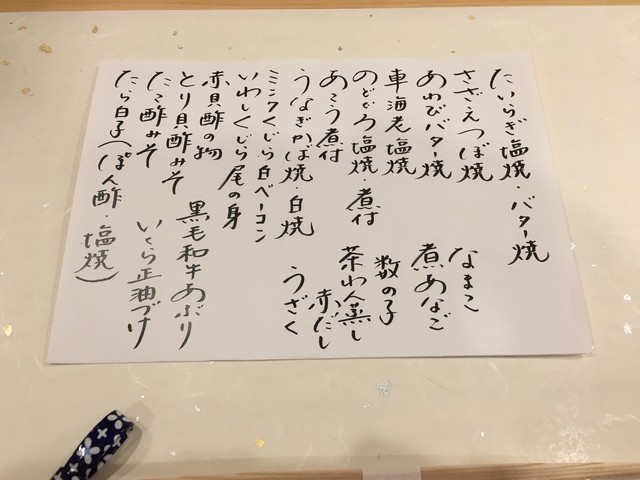 たいらぎ塩焼・バター焼
さざえつぼ焼
あわびバター焼
車海老塩焼
のどぐろ塩焼・煮付
あこう煮付
うなぎかば焼・白焼
ミンクくじら白ベーコン
いわしくじら尾の身
赤貝酢の物
とり貝酢みそ
たこ酢みそ
たら白子(ぽん酢・塩焼)
なまこ
煮あなご
数の子
茶わん蒸し
赤だし
うざく
黒毛和牛あぶり
いくら正油づけ